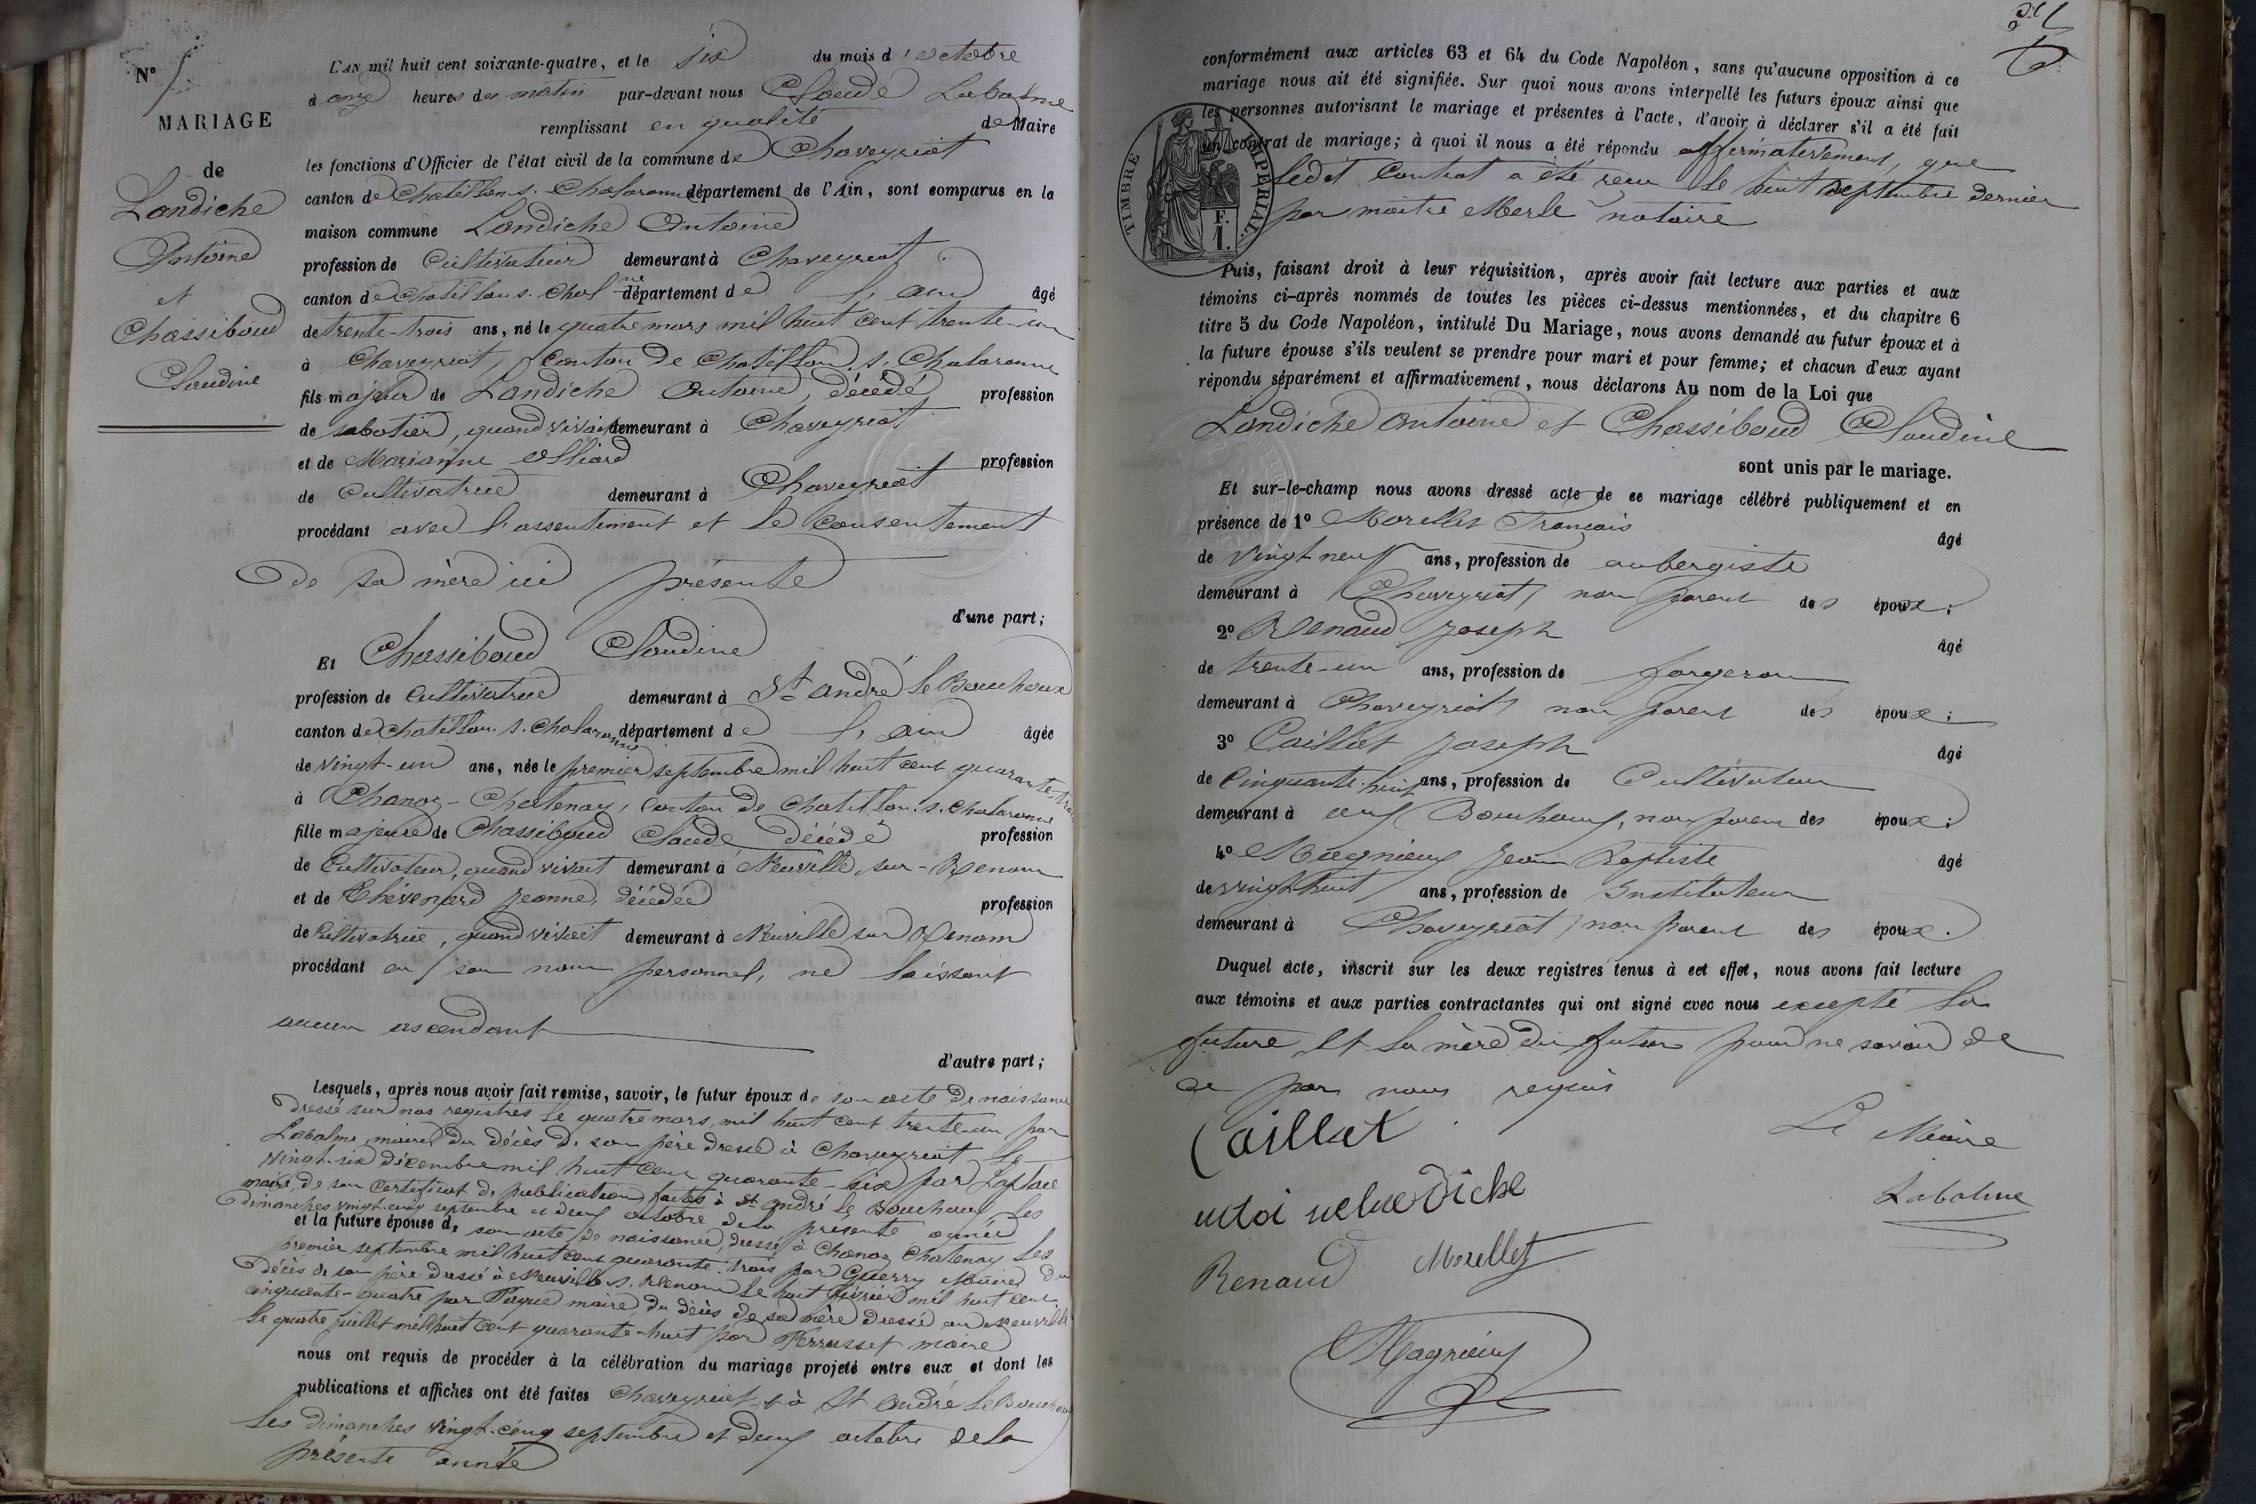 N°
MARIAGE
de
Landiche
Antoine
et
Chassiboud
Claudine
L'AN mil huit cent soixante-quatre, et le six du mois d'octobre
à onze heures du matin par-devant nous Claude Labalme
remplissant en qualité de Maire
les fonctions d'Officier de l'état civil de la commune de Chaveyriat
canton de Chatillon s. Chalaronne département de l'Ain, sont comparus en la
maison commune Landiche Antoine
profession de Cultivateur demeurant à Chaveyriat
canton de Chatillon s. Chal.ne département de l'ain âgé
de trente-trois ans, né le quatre mars mil huit cent trente-un
à Chaveyriat, Canton de Chatillon s. Chalaronne
fils majeur de Landiche Antoine, décédé profession
de sabotier, quand vivait demeurant à Chaveyriat
et de Marianne profession
de Cultivatrice demeurant à Chaveyriat
procédant avec l'assentiment et le consentement
de sa mère ici présente
d'une part;
Et Chassiboud Claudine
profession de cultivatrice demeurant à St André le Bouchoux
canton de Chatillon s. Chalaronne département de l'ain âgée
de vingt-un ans, née le premier septembre mil huit cent quarante-trois
à Chanoz-Chatenay, canton de Chatillon s. Chalaronne
fille majeure de Chassiboud Claude décédé profession
de Cultivateur, quand vivait demeurant à Neuville sur-Renom
et de Thévenard Jeanne, décédée profession
de Cultivatrice, quand vivait demeurant à Neuville sur Renom
procédant en son nom personnel, ne laissant
aucun ascendant
d'autre part;
Lesquels, après nous avoir fait remise, savoir, le futur époux de son acte de naissance
dressé sur nos registres le quatre mars mil huit cent trente-un par
Labalme, maire, du décès de son père dressé à Chaveyriat le
vingt-six décembre mil huit cent quarante-six par
maire, de son certificat de publication faites à St André le Bouchoux les
dimanches vingt-cinq septembre et deux octobre de la présente année
et la future épouse de son acte de naissance, dressé à Chanoz Chatenay les
premier septembre mil huit cent quarante-trois par Guerry Maire, du
décès de son père dressé à Neuville s. Renom le huit février mil huit cent
cinquante-quatre par maire, du décès de sa mère dressé au Neuville
le quatre juillet mil huit cent quarante-huit par Perrusset maire
nous ont requis de procéder à la célébration du mariage projeté entre eux et dont les
publications et affiches ont été faites Chaveyriat et à St André le Bouchoux
les dimanches vingt-cinq septembre et deux octobre de la
présente année
conformément aux articles 63 et 64 du Code Napoléon, sans qu'aucune opposition à ce
mariage nous ait été signifiée. Sur quoi nous avons interpellé les futurs époux ainsi que
les personnes autorisant le mariage et présentes à l'acte, d'avoir à déclarer s'il a été fait
un contrat de mariage; à quoi il nous a été répondu affirmativement, que
ledit contrat a été reçu le huit septembre dernier
par maître Merle notaire
TIMBRE IMPÉRIAL
F.
1.
Puis, faisant droit à leur réquisition, après avoir fait lecture aux parties et aux
témoins ci-après nommés de toutes les pièces ci-dessus mentionnées, et du chapitre 6
titre 5 du Code Napoléon, intitulé Du Mariage, nous avons demandé au futur époux et à
la future épouse s'ils veulent se prendre pour mari et pour femme; et chacun d'eux ayant
répondu séparément et affirmativement, nous déclarons Au nom de la Loi que
Landiche antoine et Chassiboud Claudine
sont unis par le mariage.
Et sur-le-champ nous avons dressé acte de ce mariage célébré publiquement et en
présence de 1° Morellet François âgé
de vingt neuf ans, profession de aubergiste
demeurant à Chaveyriat, non parent des époux;
2° Renaud Joseph âgé
de trente-un ans, profession de forgeron
demeurant à Chaveyriat, non parent des époux;
3° Caillat Joseph âgé
de cinquante-huit ans, profession de Cultivateur
demeurant à Bouchoux, non parent des époux;
4° Magnieux Jean Baptiste âgé
de vingt huit ans, profession de Instituteur
demeurant à Chaveyriat, non parent des époux.
Duquel acte, inscrit sur les deux registres tenus à cet effet, nous avons fait lecture
aux témoins et aux parties contractantes qui ont signé avec nous excepté la
future et la mère du futur pour ne savoir de
ce par nous requis
Caillat
Le Maire
Labalme
Renaud Morellet
Magnieux